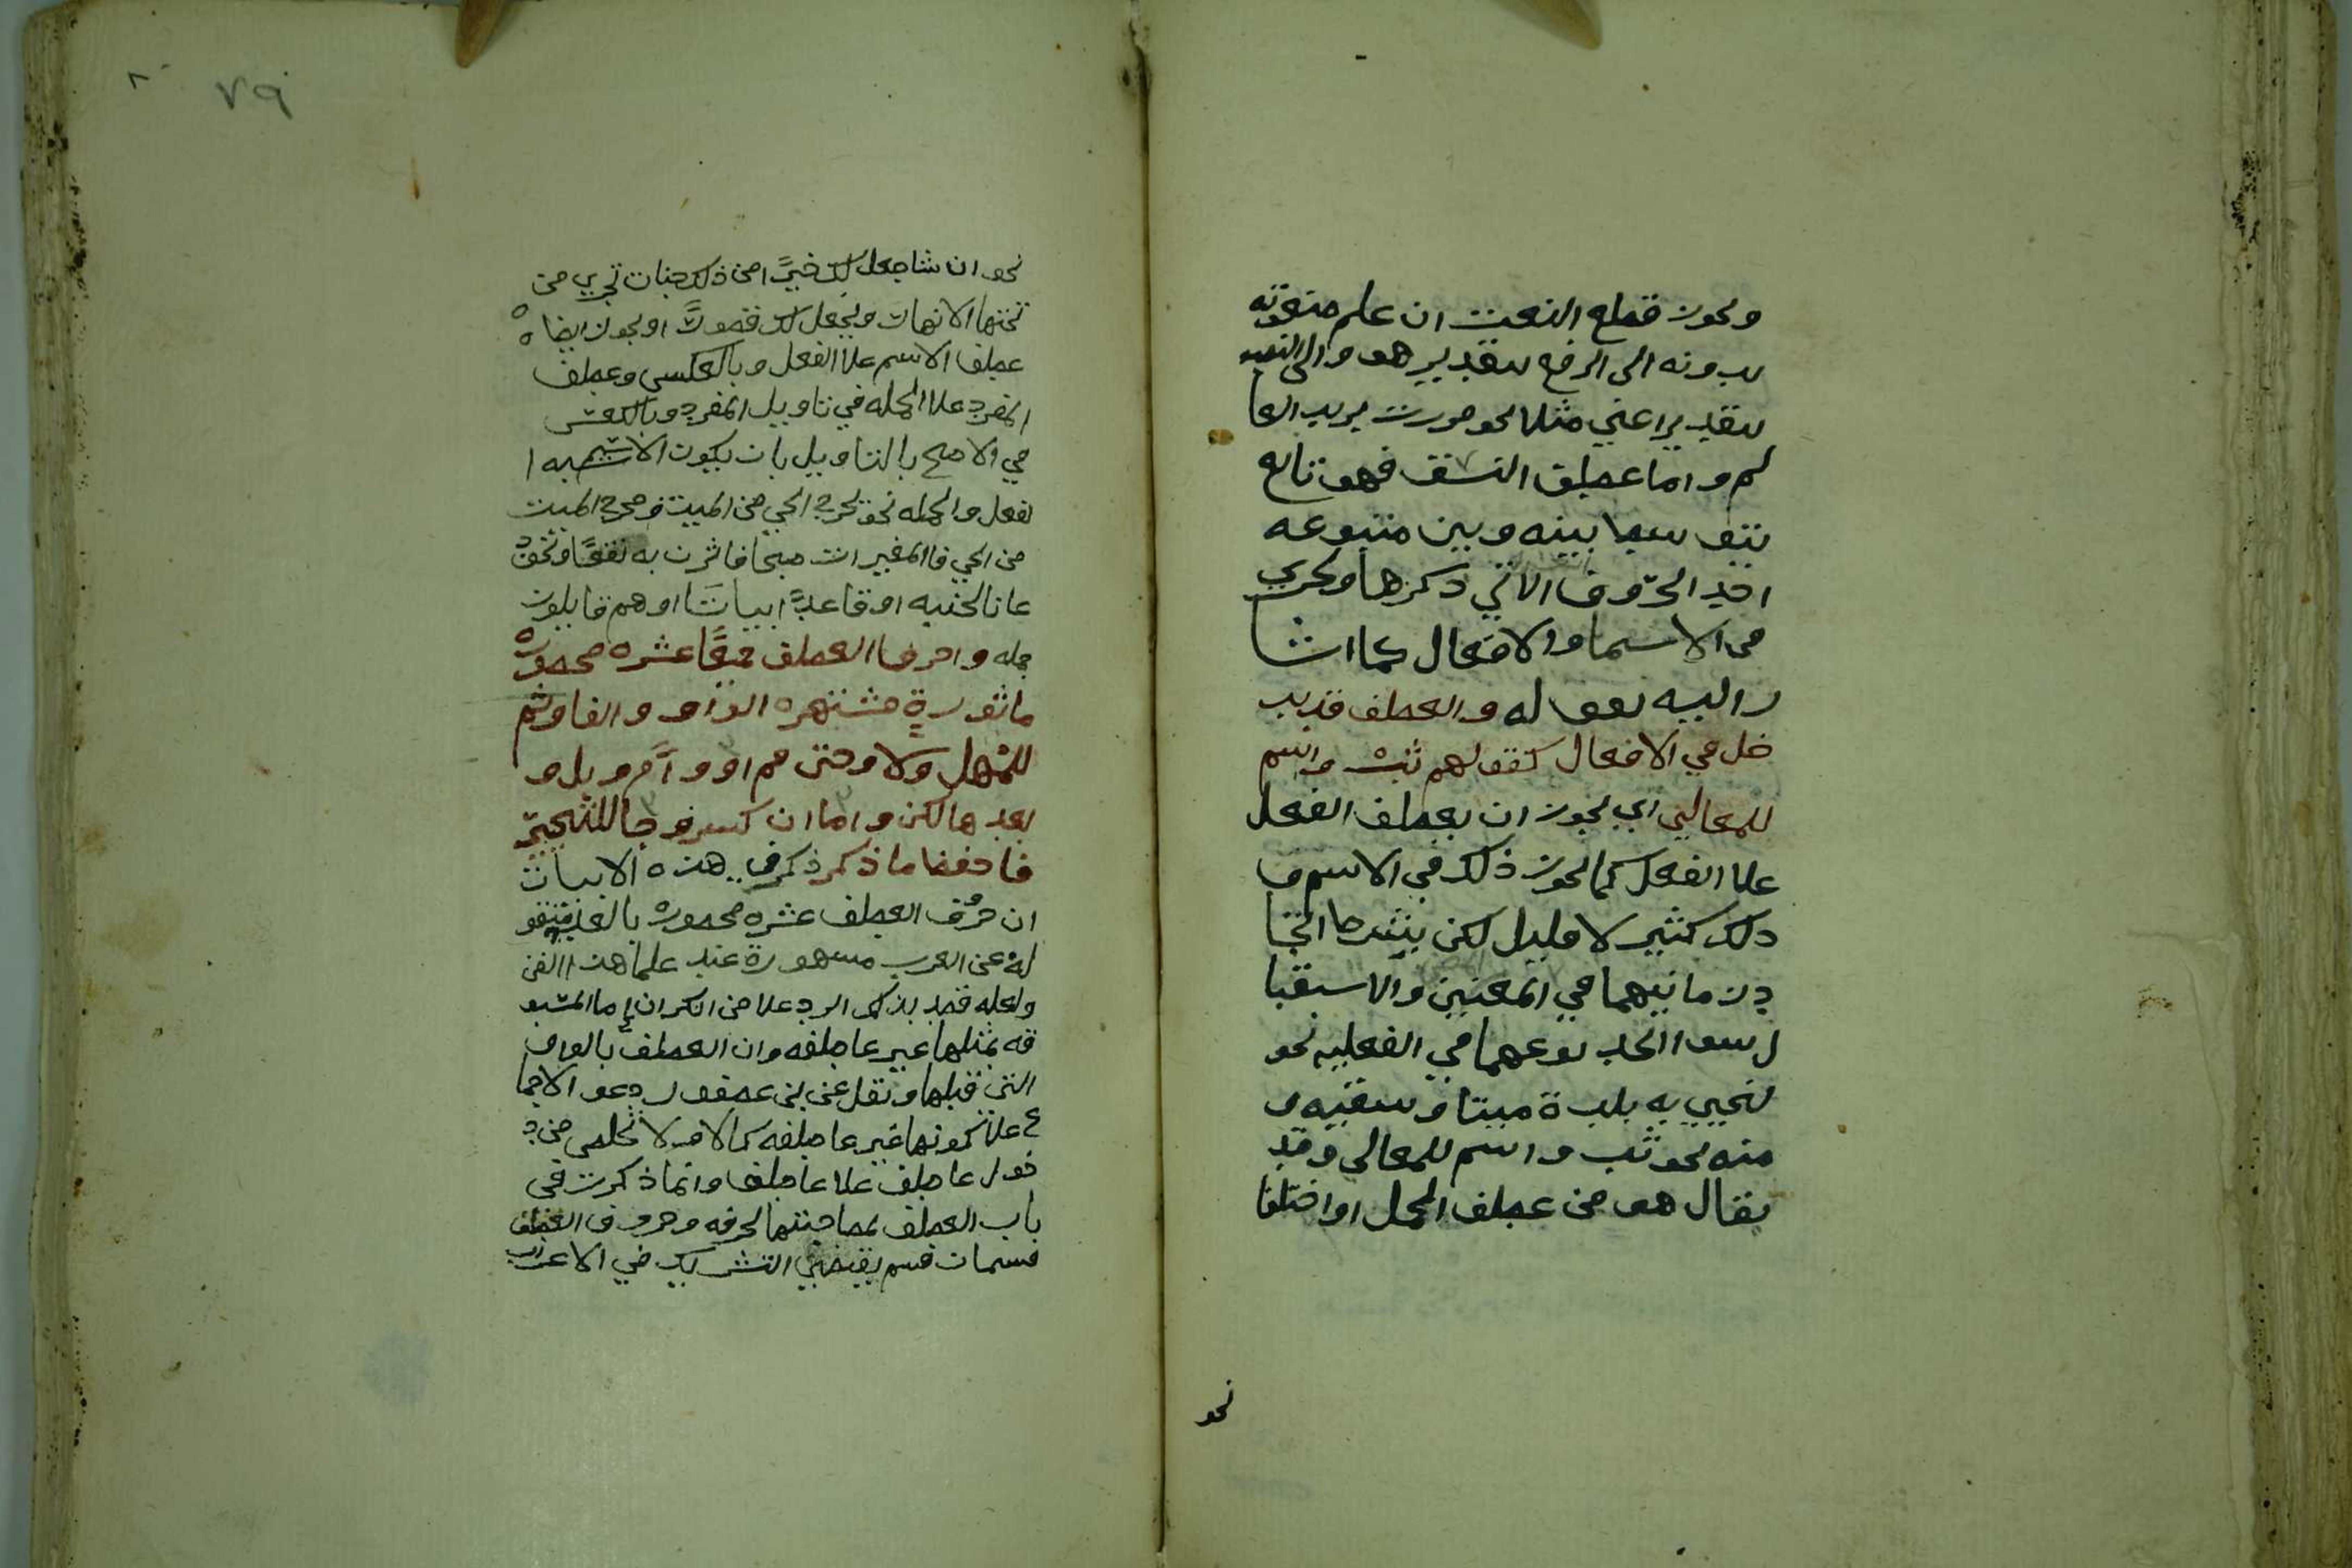 ويجوز قطع النعت ان علم منعوته
بدونه الى الرفع بتقدير هو والى النصب
بتقدير اعني مثلا نحو مررت بزيد العا
لم واما عطف النسق فهو تابع
يتوسط بينه وبين متبوعه
احد الحروف الاتي ذكرها ويجري
في الاسما والافعال كما اشا
ر اليه بقوله والعطف قد يد
خل في الافعال كقولهم ثب واسم
للمعالي اي يجوز ان يعطف الفعل
علا الفعل كما يجوز ذلك في الاسم و
ذلك كثير لا قليل لكن بشرط اتحا
د زمانيهما في المعنيين والاستقبا
ل سوا اتحد نوعهما في الفعليه نحو
لنحيي به بلدة ميتا ونسقيه و
منه نحو ثب واسم للمعالي وقد
يقال هو من عطف الجمل او اختلفا
نحو
٧٩
نحو ان شا جعل لك خيرًا من ذلك جنات تجري من
تحتها الانهار ويجعل لك قصورًا ويجوز ايضا
عطف الاسم علا الفعل وبالعكس وعطف
المفرد علا الجمله في تاويل المفرد وبالعكس
في الاصح بالتاويل بان يكون الاسم يشبه ا
لفعل والجمله نحو يخرج الحي من الميت ومخرج الميت
من الحي فالمغيرات صبحا فاثرن به نقعًا ونحو
عانا لجنبه او قاعدًا بياتًا او هم قايلون
جمله واحرف العطف جميعًا عشره محصوره
ماثورة مشتهره الواو والفا وثم
للمهل ولا وحتى ثم او وام وبل و
بعدها لكن واما ان كسر وجا للتخيير
فاحفظ ما ذكر ذكر في هذه الابيات
ان حرف العطف عشره محصوره بالعد منقو
له عن العرب مشهورة عند علما هذا الفن
ولعله قصد بذلك الرد علا من انكر ان إما المسبو
قه بمثلها غير عاطفه وان العطف بالواو
التي قبلها ونقل عن بن عصفور دعو الاجما
ع علا كونها غير عاطفه كالاول لا تخلص من د
خول عاطف علا عاطف وانما ذكرت في
باب العطف لمصاحبتها لحرفه وحروف العطف
قسمان قسم يقتضي التشريك في الاعراب